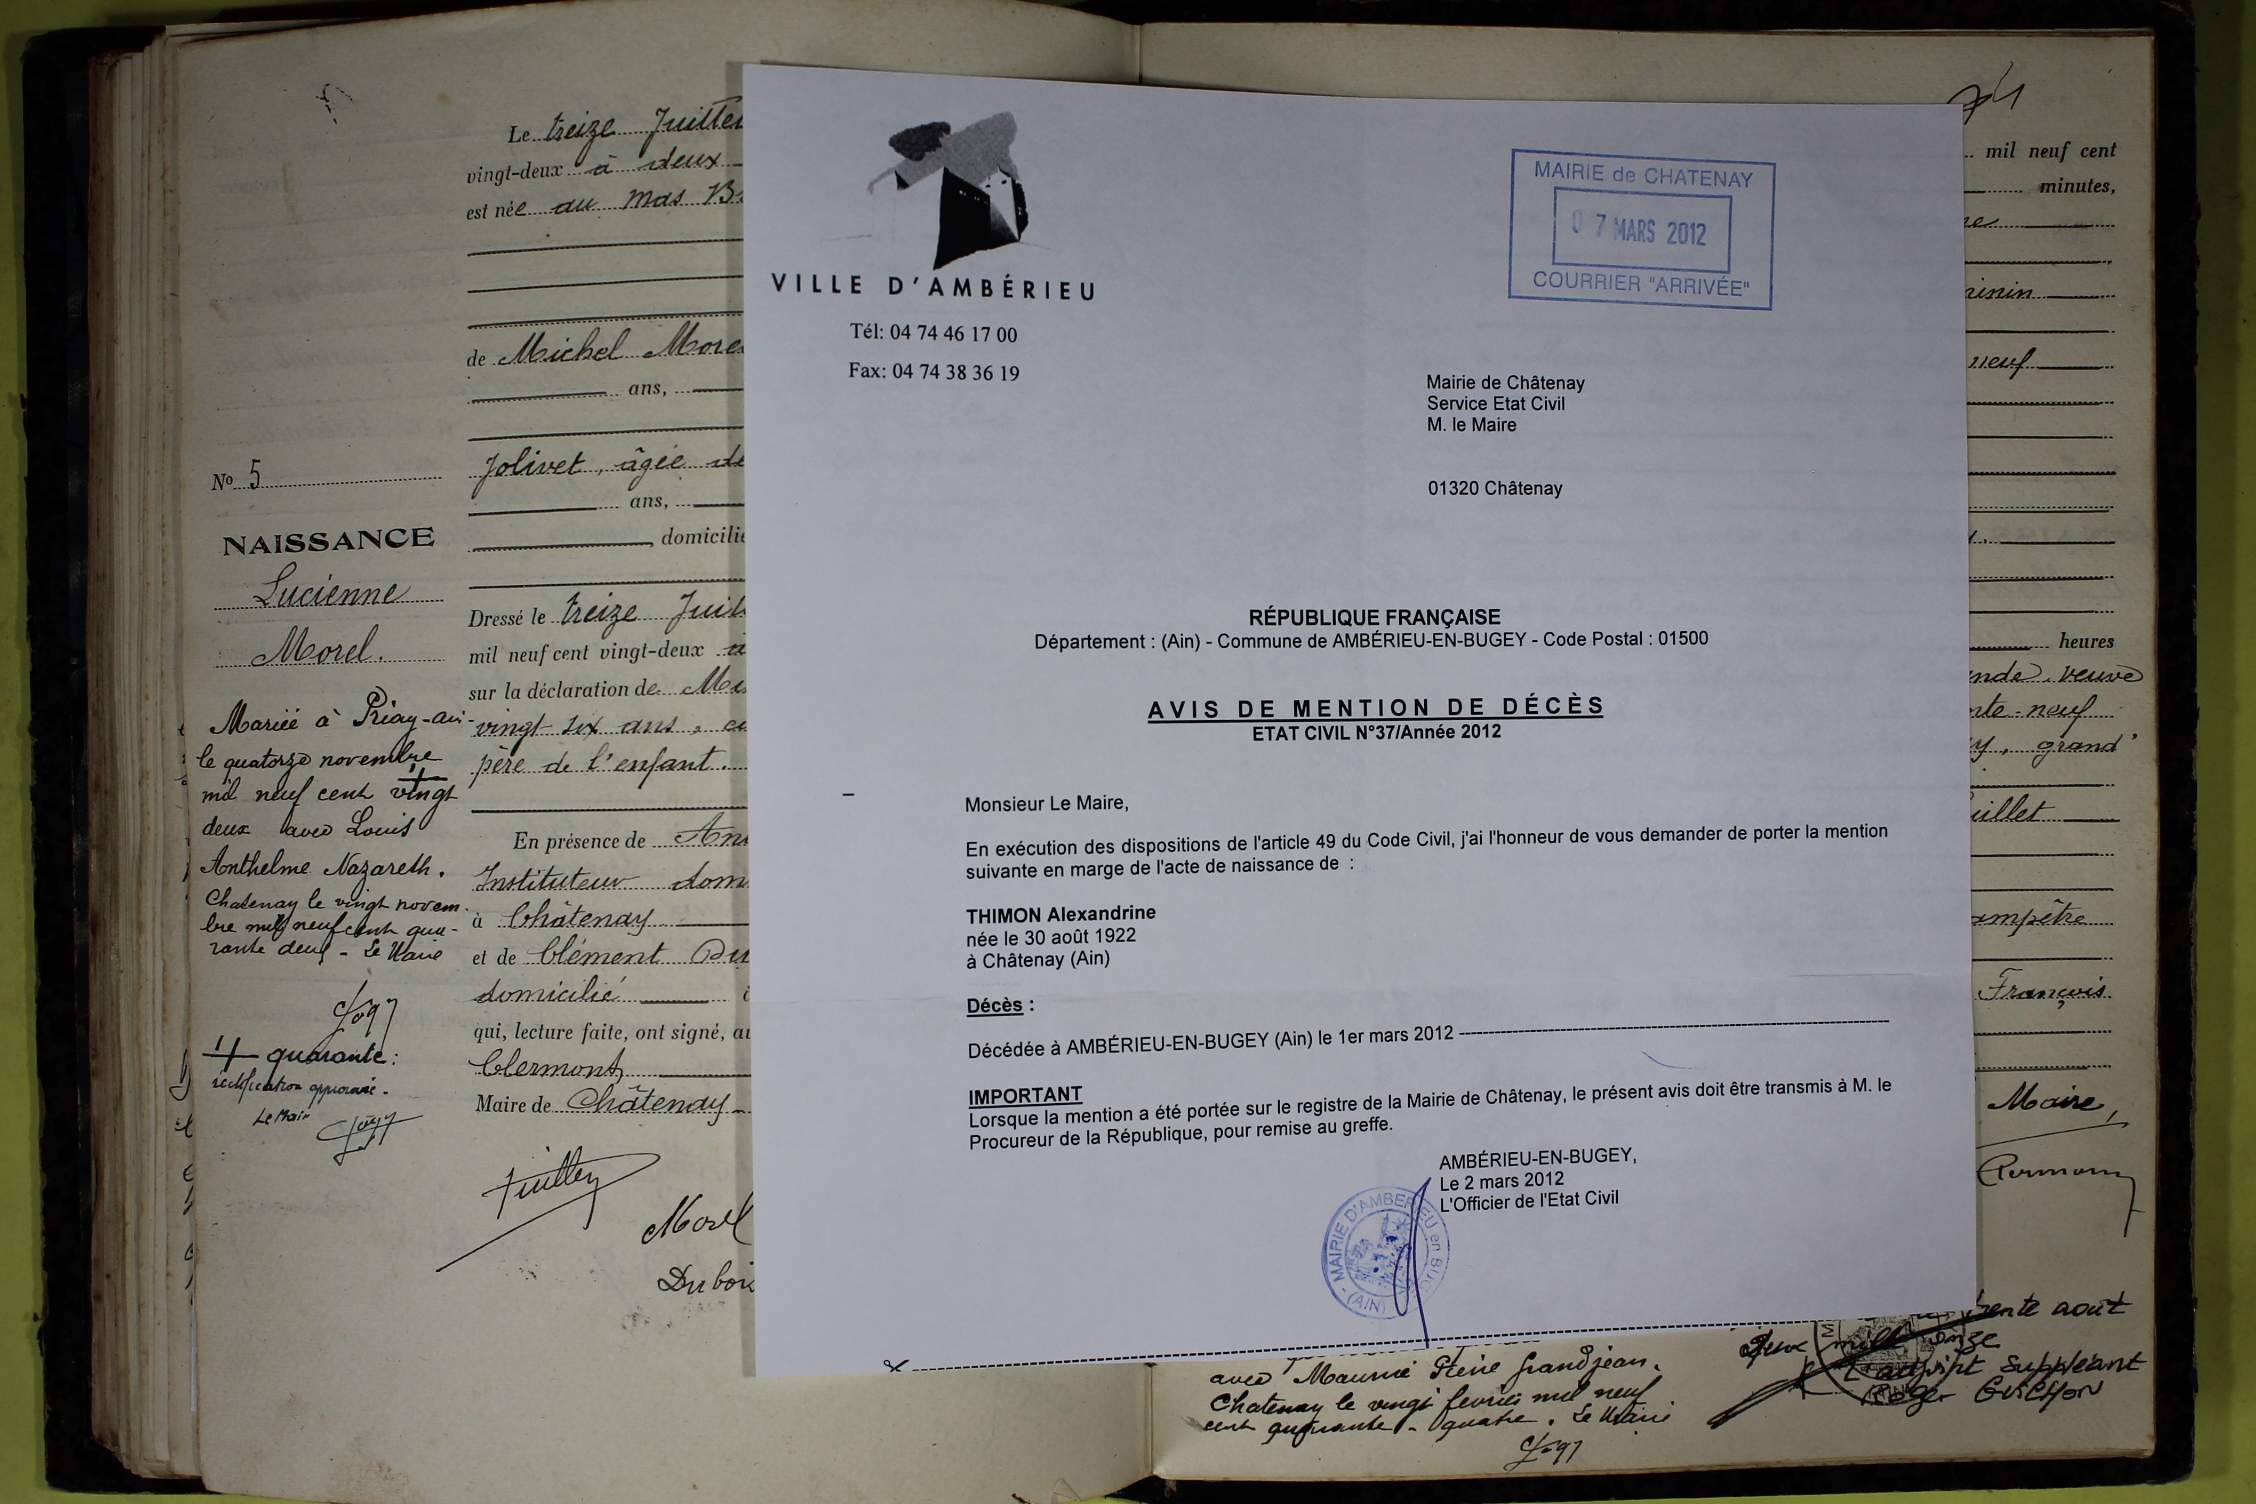 Le treize Juillet
vingt-deux à deux
est née au Mas
de Michel Morel
ans,
Jolivet, âgée de
ans,
domicilié
Dressé le treize Juil
mil neuf cent vingt-deux à
sur la déclaration de
vingt six ans,
père de l'enfant.
En présence de
Instituteur dom
à Châtenay
et de Clément
domicilié
qui, lecture faite, ont signé, au
Clermont
Maire de Châtenay
Morel
Dubois
No 5
NAISSANCE
Lucienne
Morel.
Mariée à Priay-ain-
le quatorze novembre
mil neuf cent vingt
deux avec Louis
Anthelme Nazareth.
Chatenay le vingt novem-
bre mil neuf cent qua-
rante deux - Le Maire
quarante:
rectification approuvée.
Le Maire
VILLE D'AMBÉRIEU
Tél: 04 74 46 17 00
Fax: 04 74 38 36 19
MAIRIE de CHATENAY
0 7 MARS 2012
COURRIER "ARRIVÉE"
Mairie de Châtenay
Service Etat Civil
M. le Maire
01320 Châtenay
RÉPUBLIQUE FRANÇAISE
Département : (Ain) - Commune de AMBÉRIEU-EN-BUGEY - Code Postal : 01500
AVIS DE MENTION DE DÉCÈS
ETAT CIVIL N°37/Année 2012
Monsieur Le Maire,
En exécution des dispositions de l'article 49 du Code Civil, j'ai l'honneur de vous demander de porter la mention
suivante en marge de l'acte de naissance de :
THIMON Alexandrine
née le 30 août 1922
à Châtenay (Ain)
Décès :
Décédée à AMBÉRIEU-EN-BUGEY (Ain) le 1er mars 2012
IMPORTANT
Lorsque la mention a été portée sur le registre de la Mairie de Châtenay, le présent avis doit être transmis à M. le
Procureur de la République, pour remise au greffe.
AMBÉRIEU-EN-BUGEY,
Le 2 mars 2012
L'Officier de l'Etat Civil
MAIRIE D'AMBERIEU en BUGEY
(AIN)
mil neuf cent
minutes,
neuf
heures
veuve
nte-neuf
grand'
uillet
ampêtre
François
Maire,
avec Maurice Pierre Grandjean.
Chatenay le vingt fevrier mil neuf
cent quarante-quatre. Le Maire
trente août
deux mille onze
L'adjoint suppléant
Roger GUICHON